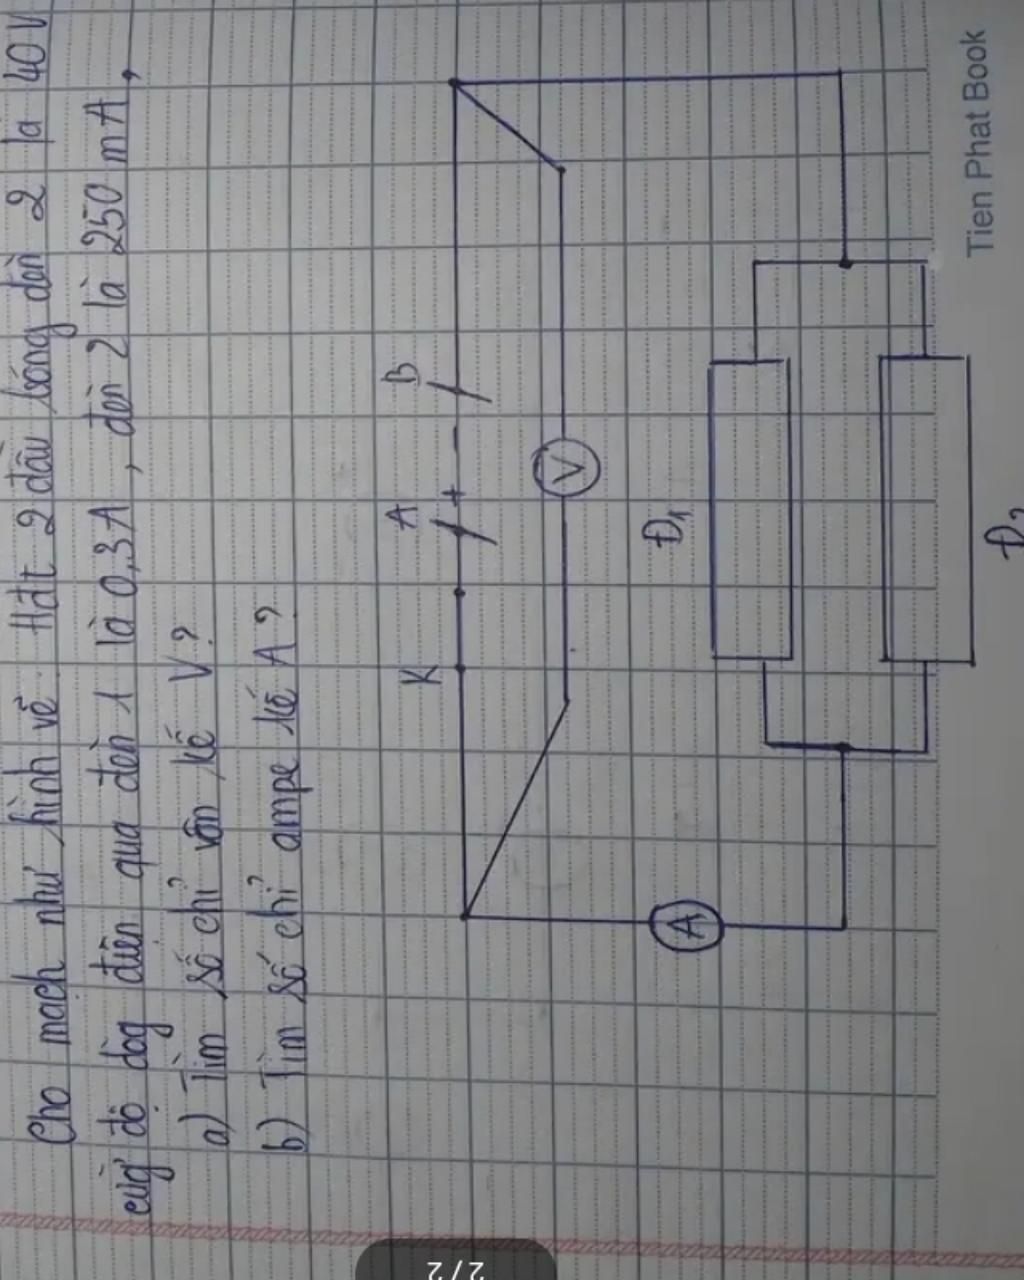 Cho mạch như hình vẽ. Hđt 2 đầu bóng đèn 2 là 40V
cừg độ dòg điện qua đèn 1 là 0,3A, đèn 2 là 250 mA,
a) Tìm số chỉ vôn kế V?
b) Tìm số chỉ ampe kế A?
K A + - B
V
Đ1
A
Đ2
Tien Phat Book
2/2